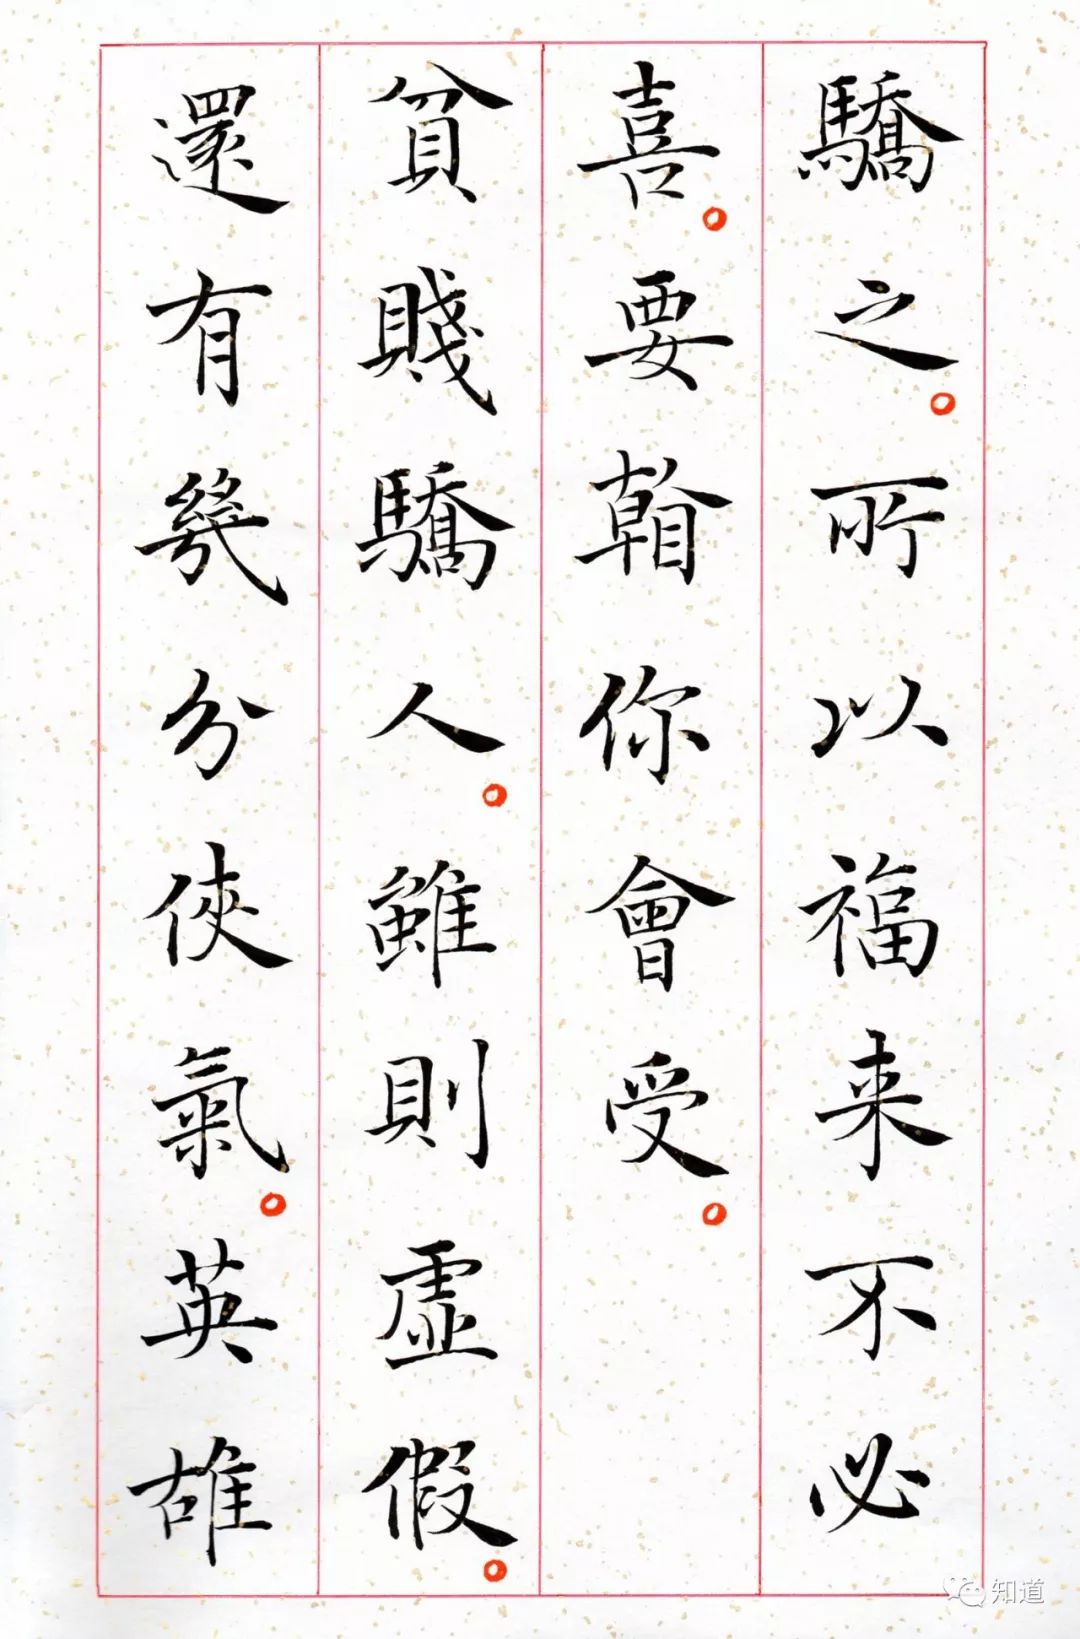 驕之。所以福来不必
喜。要看你會受。
貧賤驕人。雖則虛假。
還有幾分俠氣。英雄
知道